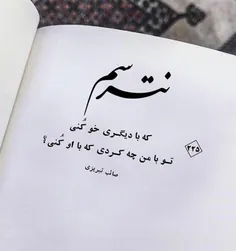 نترسم
که با دیگری خو کُنی
تو با من چه کردی که با او کُنی؟
صائب تبریزی
۲۲۵